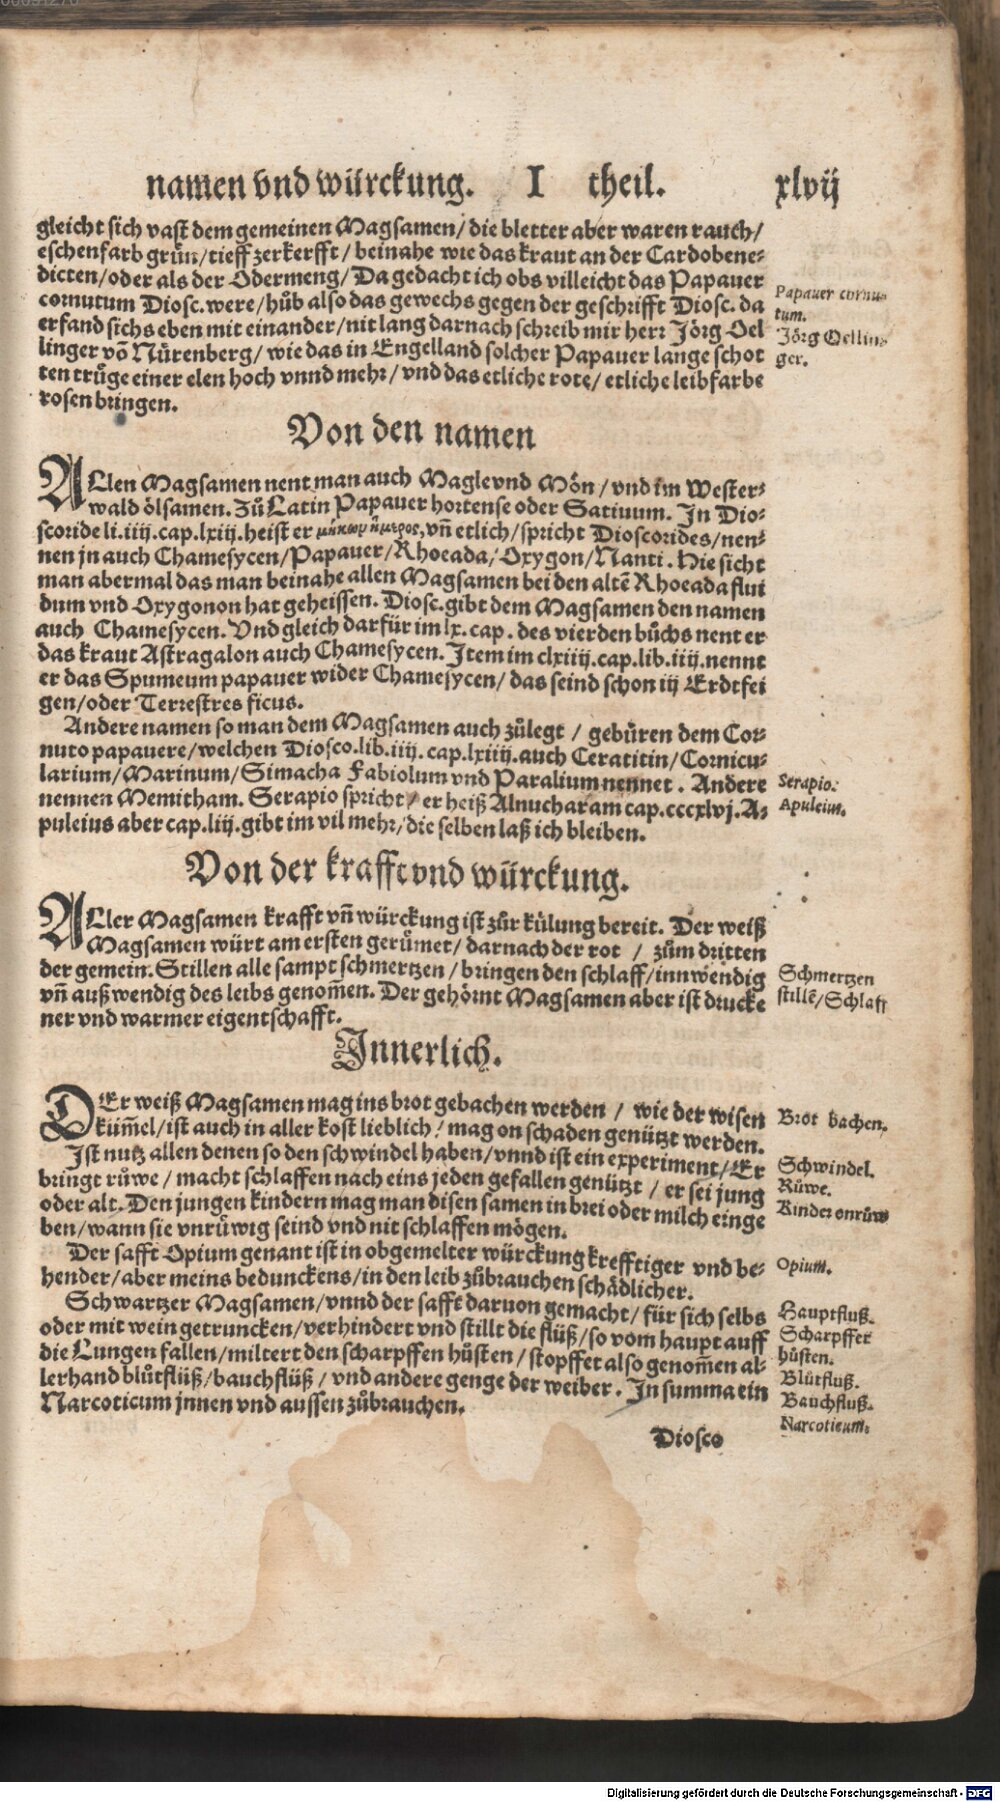 namen vnd würckung. I theil. xlvij
gleicht sich vast dem gemeinen Magsamen/ die bletter aber waren rauch/
eschenfarb grün/ tieff zerkerfft/ beinahe wie das kraut an der Cardobene-
dicten/ oder als der Odermeng/ Da gedacht ich obs villeicht das Papauer
cornutum Diosc. were/ hůb also das gewechs gegen der geschrifft Diosc. da
erfand sichs eben mit einander/ nit lang darnach schreib mir herr Jörg Oel
linger võ Nürenberg/ wie das in Engelland solcher Papauer lange schot
ten trůge einer elen hoch vnnd mehr/ vnd das etliche rote/ etliche leibfarbe
rosen bringen.
Papauer cornu-
tum.
Jörg Oellin-
ger.
Von den namen
ALlen Magsamen nent man auch Magle vnd Mön/ vnd im Wester-
wald ölsamen. Zů Latin Papauer hortense oder Satiuum. In Dio-
scoride li. iiij. cap. lxiij. heist er μήκων ἥμερος, vñ etlich/ spricht Dioscorides/ nen-
nen jn auch Chamesycen/ Papauer/ Rhoeada/ Oxygon/ Nanti. Hie sicht
man abermal das man beinahe allen Magsamen bei den altẽ Rhoeada flui
dum vnd Oxygonon hat geheissen. Diosc. gibt dem Magsamen den namen
auch Chamesycen. Vnd gleich darfür im lx. cap. des vierden bůchs nent er
das kraut Astragalon auch Chamesycen. Item im clxiiij. cap. lib. iiij. nennt
er das Spumeum papauer wider Chamesycen/ das seind schon iij Erdtfei
gen/ oder Terrestres ficus.
Andere namen so man dem Magsamen auch zůlegt/ gebüren dem Cor-
nuto papauere/ welchen Diosco. lib. iiij. cap. lxiiij. auch Ceratitin/ Cornicu-
larium/ Marinum/ Simacha Fabiolum vnd Paralium nennet. Andere
nennen Memitham. Serapio spricht/ er heiß Alnuchar am cap. cccxlvj. A-
puleius aber cap. liij. gibt im vil mehr/ die selben laß ich bleiben.
Serapio.
Apuleius.
Von der krafft vnd würckung.
ALler Magsamen krafft vñ würckung ist zůr külung bereit. Der weiß
Magsamen würt am ersten gerůmet/ darnach der rot / zům dritten
der gemein. Stillen alle sampt schmertzen/ bringen den schlaff/ innwendig
vñ auß wendig des leibs genom̃en. Der gehörnt Magsamen aber ist drucke
ner vnd warmer eigentschafft.
Schmertzen
stillẽ/ Schlaff
Innerlich.
DEr weiß Magsamen mag ins brot gebachen werden / wie der wisen
küm̃el/ ist auch in aller kost lieblich/ mag on schaden genützt werden.
Ist nutz allen denen so den schwindel haben/ vnnd ist ein experiment/ Er
bringt růwe/ macht schlaffen nach eins jeden gefallen genützt/ er sei jung
oder alt. Den jungen kindern mag man disen samen in brei oder milch einge
ben/ wann sie vnrüwig seind vnd nit schlaffen mögen.
Der safft Opium genant ist in obgemelter würckung krefftiger vnd be-
hender/ aber meins bedunckens/ in den leib zůbrauchen schädlicher.
Schwartzer Magsamen/ vnnd der safft daruon gemacht/ für sich selbs
oder mit wein getruncken/ verhindert vnd stillt die flüß/ so vom haupt auff
die Lungen fallen/ miltert den scharpffen hůsten/ stopffet also genom̃en al-
lerhand blůtflüß/ bauchflüß/ vnd andere genge der weiber. In summa ein
Narcoticum jnnen vnd aussen zůbrauchen.
Brot bachen.
Schwindel.
Růwe.
Kinder onrůw
Opium.
Hauptfluß.
Scharpffer
hůsten.
Blůtfluß.
Bauchfluß.
Narcoticum.
Diosco
Digitalisierung gefördert durch die Deutsche Forschungsgemeinschaft - DFG